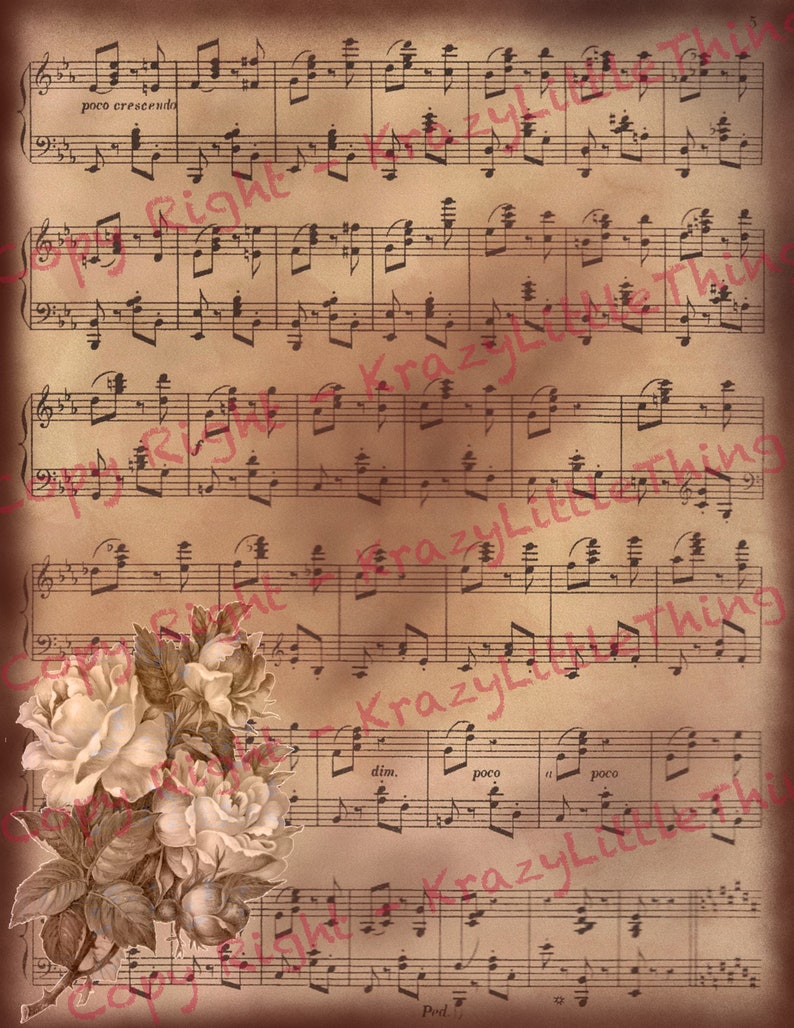 5
poco crescendo
Copy Right - KrazyLittleThing
Copy Right - KrazyLittleThing
Copy Right - KrazyLittleThing
Copy Right - KrazyLittleThing
dim. poco a poco
Copy Right - KrazyLittleThing
Copy Right - KrazyLittleThing
Ped.